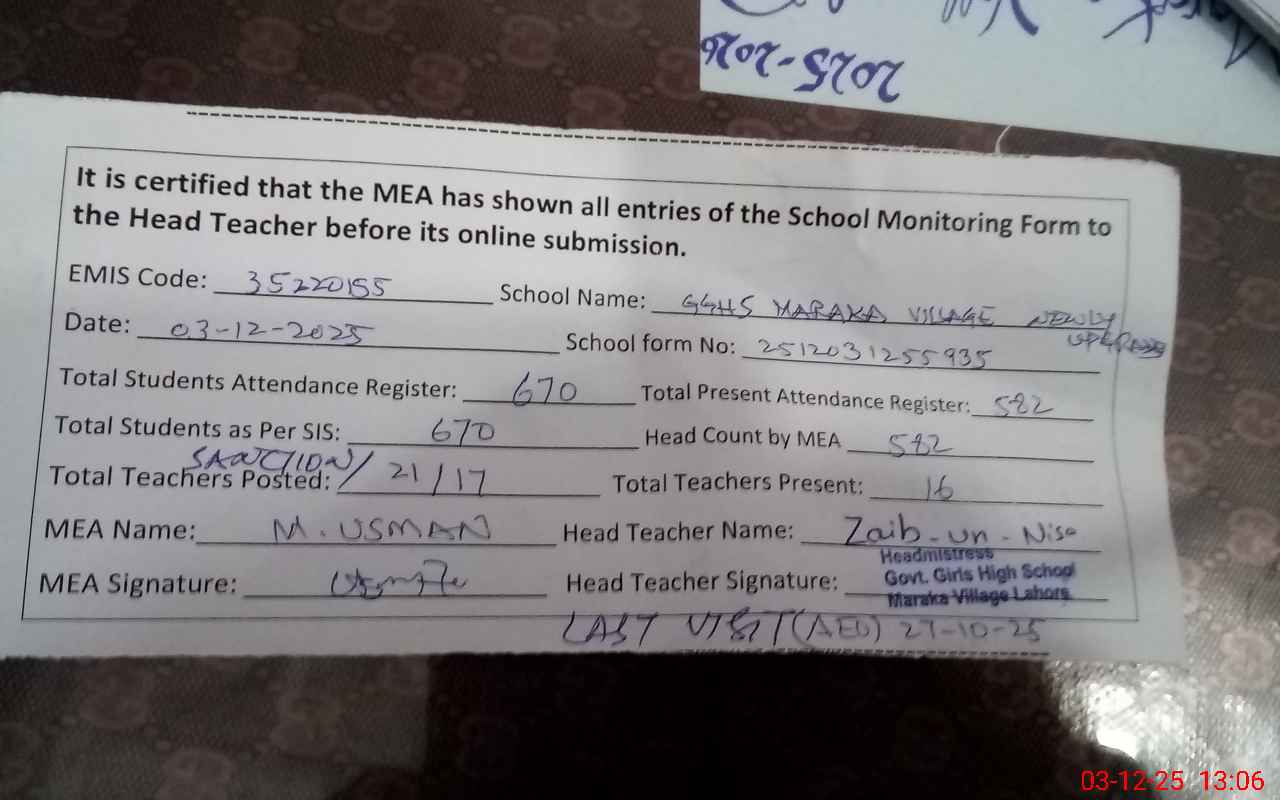 2025-2026
It is certified that the MEA has shown all entries of the School Monitoring Form to
the Head Teacher before its online submission.
EMIS Code: 35220155 School Name: GGHS MARAKA VILLAGE NEWLY
Date: 03-12-2025 School form No: 2512031255935
Total Students Attendance Register: 670 Total Present Attendance Register: 582
Total Students as Per SIS: 670 Head Count by MEA 582
SANCTION/
Total Teachers Posted: 21/17 Total Teachers Present: 16
MEA Name: M. USMAN Head Teacher Name: Zaib-un-Nisa
Headmistress
MEA Signature: Head Teacher Signature: Govt. Girls High School
Maraka Village Lahore
LAST VISIT (AEO) 27-10-25
03-12-25 13:06